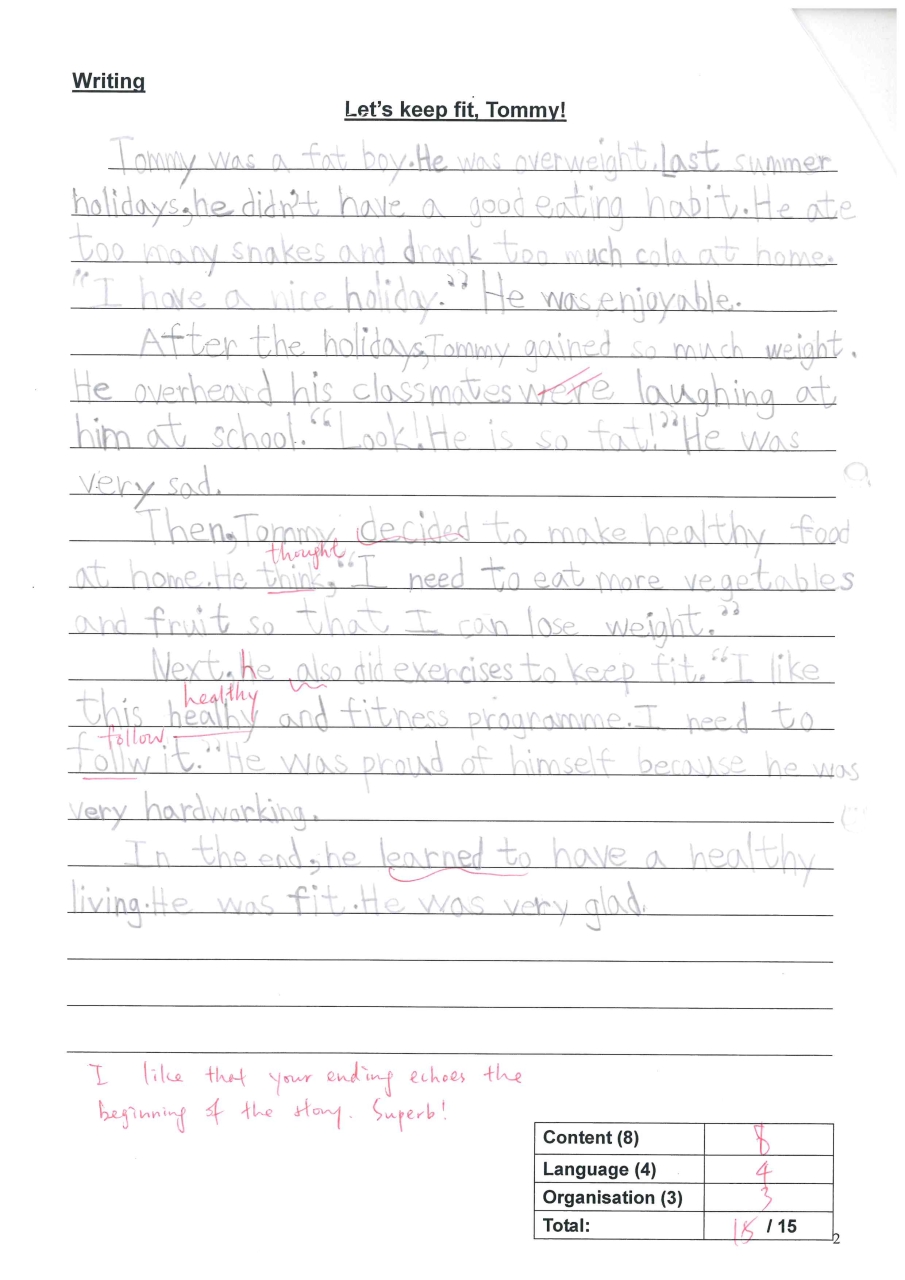 Writing
Let's keep fit, Tommy!
Tommy was a fat boy. He was overweight. Last summer
holidays, he didn't have a good eating habit. He ate
too many snakes and drank too much cola at home.
"I have a nice holiday." He was enjoyable.
After the holidays, Tommy gained so much weight.
He overheard his classmates were laughing at
him at school. "Look! He is so fat!" He was
very sad.
Then, Tommy decided to make healthy food
thought
at home. He think, "I need to eat more vegetables
and fruit so that I can lose weight."
Next, he also did exercises to keep fit. "I like
healthy
this healhy and fitness programme. I need to
follow
follw it." He was proud of himself because he was
very hardworking.
In the end, he learned to have a healthy
living. He was fit. He was very glad.
I like that your ending echoes the
beginning of the story. Superb!
Content (8) 8
Language (4) 4
Organisation (3) 3
Total: 15 / 15
2